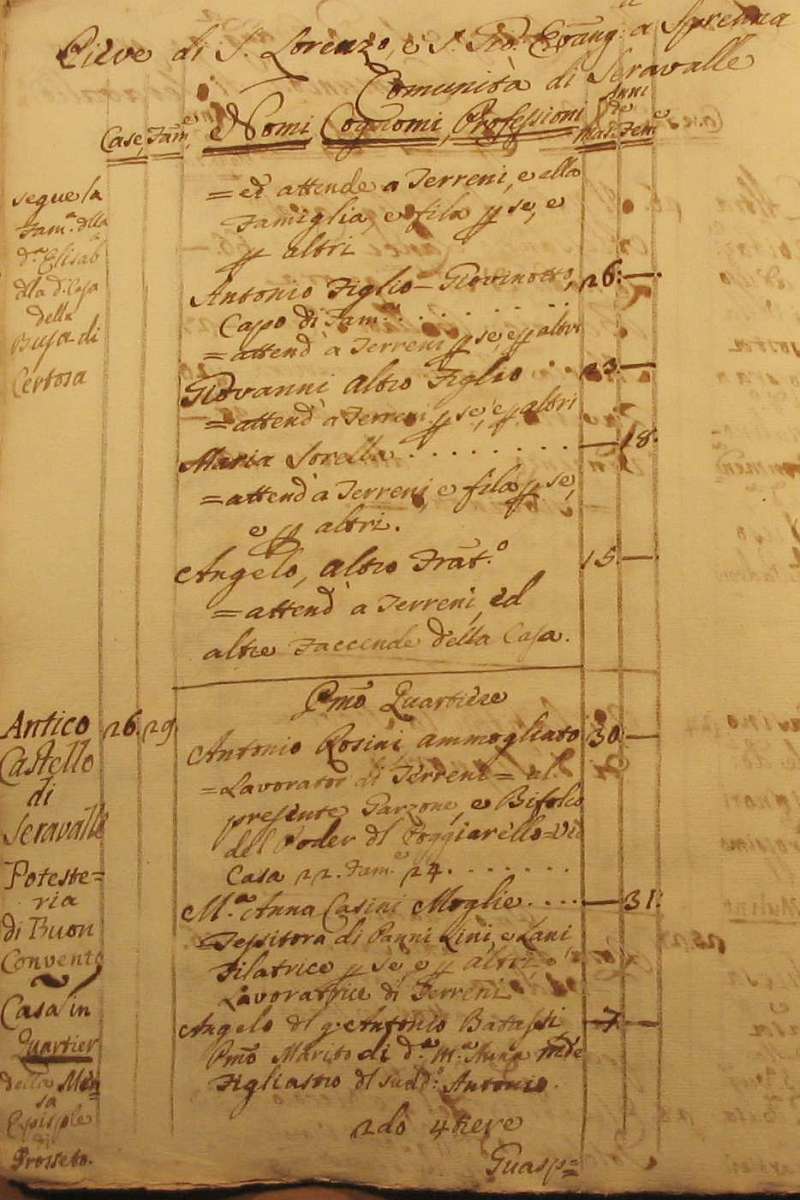 Pieve di S. Lorenzo, e S. Gio. Evang. a Sprenna
Comunità di Seravalle
Case, Fam.e, Nomi, Cognomi, Professioni Anni de Mas. Fem.e
segue la Fam.a della
d.a Elisab.
della d. Casa
della
Buja di
Certosa
= ed attende a Terreni, e alla
Famiglia, e fila p se, e
p altri
Antonio Figlio - Giovinotto, 26. —
Capo di Fam.a . . . . . .
= attend' a Terreni p se, e p altri
Giovanni altro Figlio . . 23. —
= attend' a Terreni p se, e p altri
Maria Sorella . . . . . . . . — 18.
= attend' a Terreni, e fila p se,
e p altri.
Angelo, altro Frat.o 15. —
= attend' a Terreni, ed
altre Faccende della Casa.
Pmo Quartiere
Antico
Castello
di
Seravalle
Poteste=
ria
di Buon
Convento
Casa in
Quartier
della Men=
sa
Episple
di
Grosseto.
26. 29. Antonio Rosini ammogliato 30. —
= Lavorator di Terreni = al
presente Garzone, e Bifolco
del Poder dl Poggiarello = Vide
Casa 22. Fam.e 24. . . . . . . .
M.a Anna Casini Moglie . . . . — 31.
= Tessitora di Panni Lini, e Lani
Filatrice p se, e p altri, e
Lavoratrice di Terreni
Angelo dl q. Antonio 7 —
Pmo Marito di d.a M.a Anna
Figliastro dl sud.o Antonio.
2do 4tiere
Guasp=